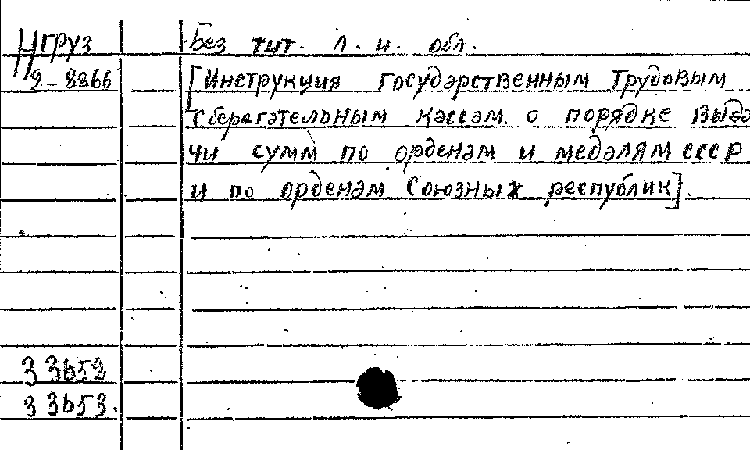 Нгруз Без тит. л. и. обл.
2-8866 [Инструкция государственным трудовым
сберегательным кассам о порядке выда
чи сумм по орденам и медалям СССР
и по орденам Союзных республик].
33652
33653.